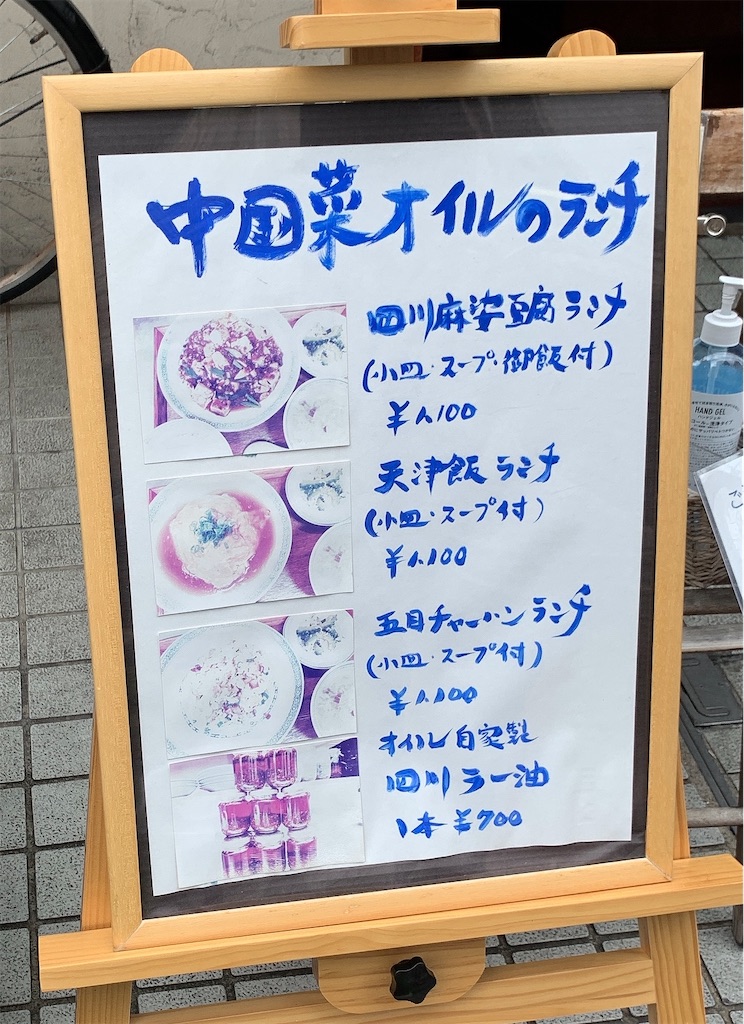 中国菜オイルのランチ
四川麻婆豆腐ランチ
(小皿・スープ・御飯付)
¥1,100
天津飯ランチ
(小皿・スープ付)
¥1,100
五目チャーハンランチ
(小皿・スープ付)
¥1,100
オイル自家製
四川ラー油
1本¥700
HAND GEL